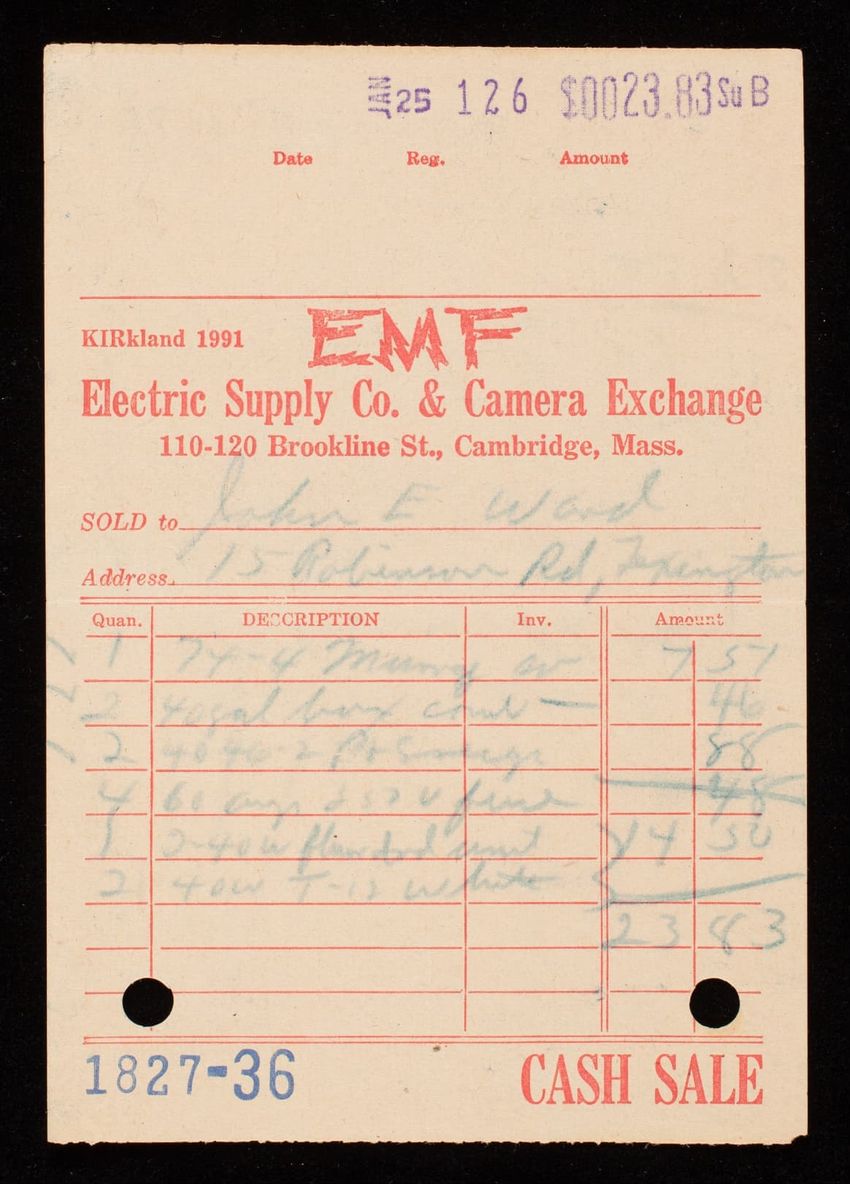 JAN 25 126 $0023.83 Su B
Date Reg. Amount
KIRkland 1991 EMF
Electric Supply Co. & Camera Exchange
110-120 Brookline St., Cambridge, Mass.
SOLD to John E Ward
Address. 15 Robinson Rd, Lexington
Quan. DESCRIPTION Inv. Amount
1 74-4 7 51
2 box 46
2 88
4 60 amp 250 V fuse 48
1 2-40w unit 14 50
2 40w T-12 white
23 83
1827-36 CASH SALE